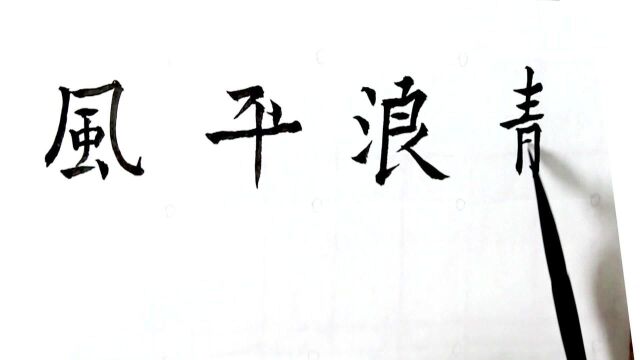 風平浪青